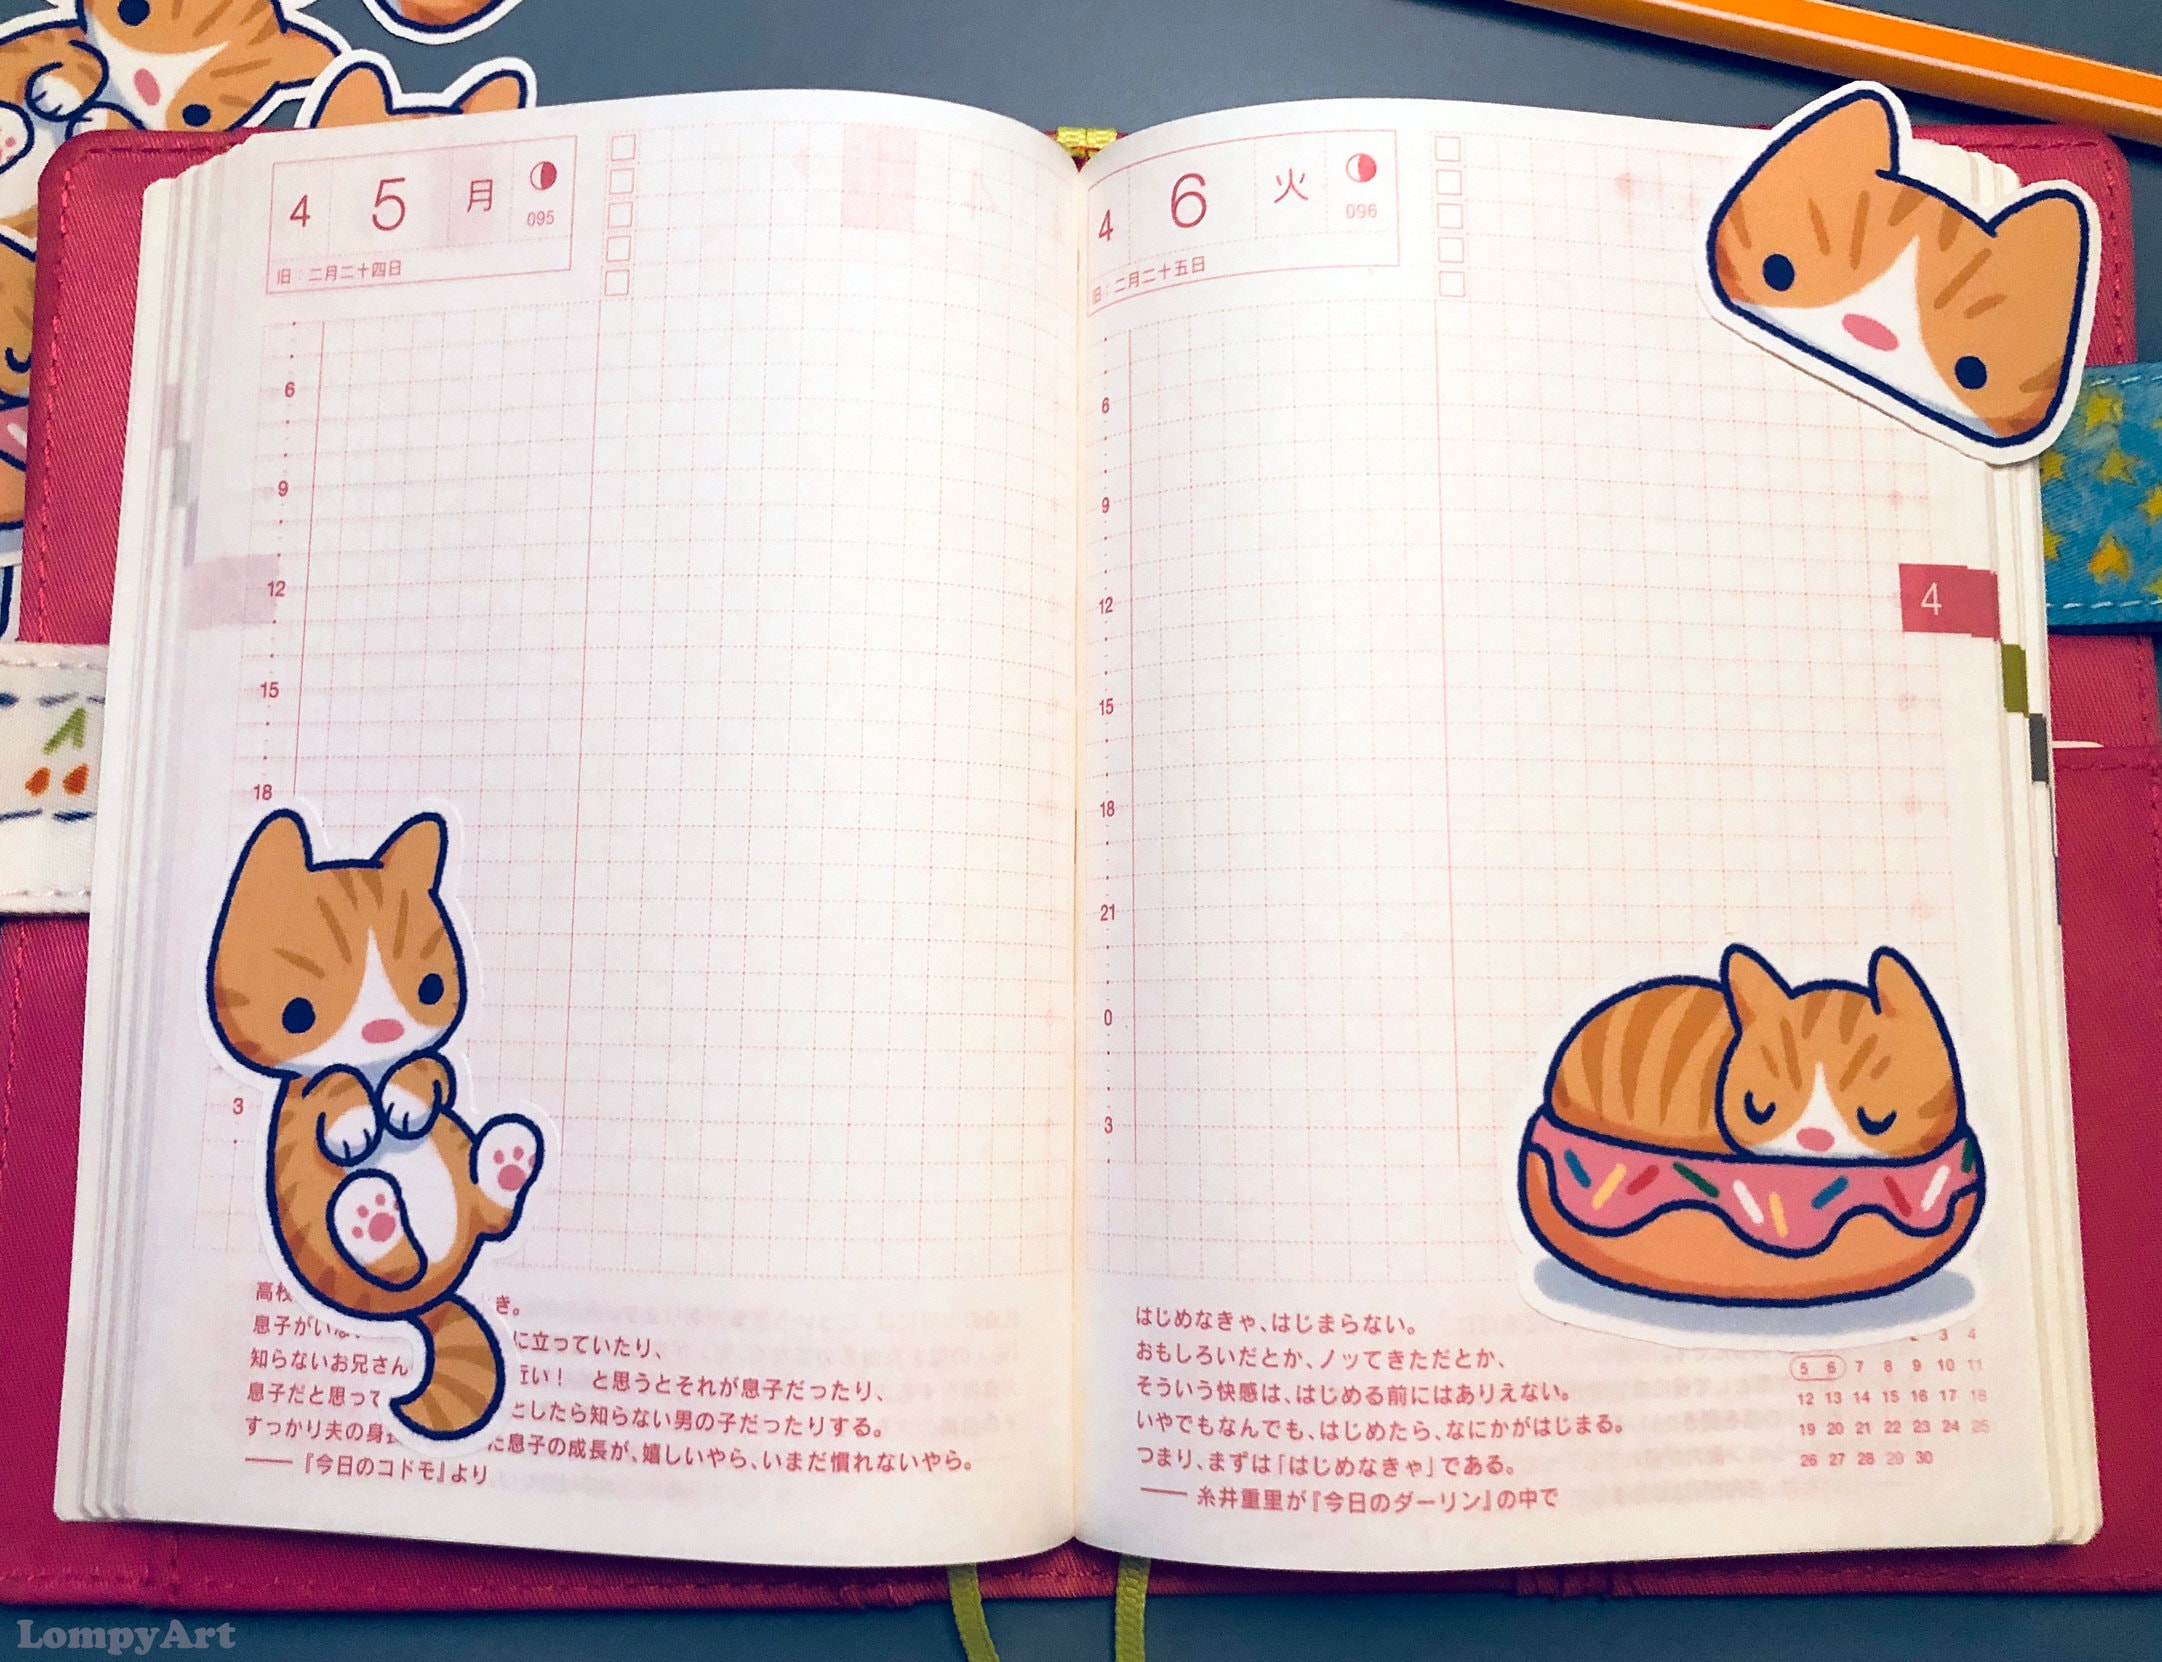 4 5 月 095
旧：二月二十四日
6
9
12
15
18
3
高校 き。
息子がいな に立っていたり、
知らないお兄さん 近い！ と思うとそれが息子だったり、
息子だと思って としたら知らない男の子だったりする。
すっかり夫の身長 た息子の成長が、嬉しいやら、いまだ慣れないやら。
——『今日のコドモ』より
4 6 火 096
旧：二月二十五日
6
9
12
15
18
21
0
3
4
はじめなきゃ、はじまらない。
おもしろいだとか、ノッてきただとか、
そういう快感は、はじめる前にはありえない。
いやでもなんでも、はじめたら、なにかがはじまる。
つまり、まずは「はじめなきゃ」である。
——糸井重里が『今日のダーリン』の中で
2 3 4
5 6 7 8 9 10 11
12 13 14 15 16 17 18
19 20 21 22 23 24 25
26 27 28 29 30
LompyArt